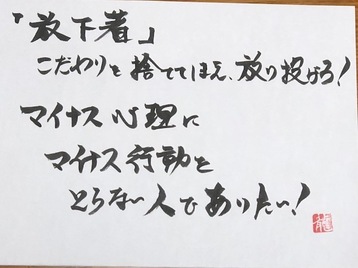 「放下着」
こだわりを捨ててほえ、放り投げろ!
マイナス心理に
マイナス行動を
とらない人でありたい!
龍